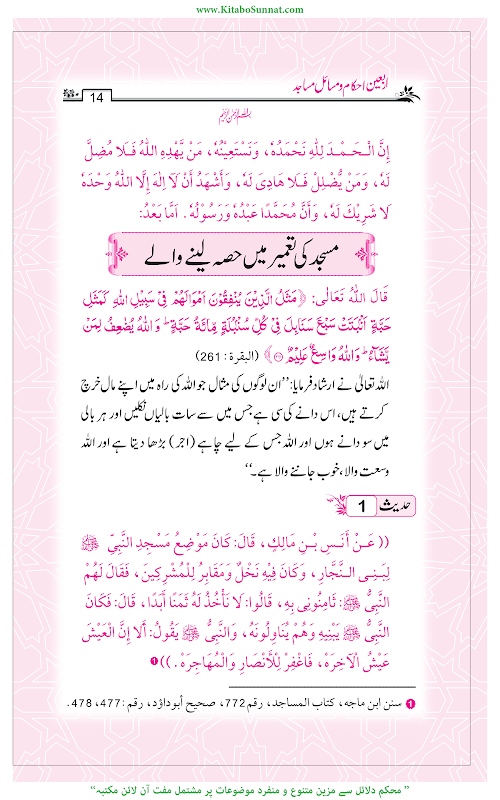 www.KitaboSunnat.com
اربعین احکام و مسائل مساجد
14
بسم الله الرحمن الرحیم
إِنَّ الْـحَـمْـدَ لِلّٰهِ نَحْمَدُهٗ، وَنَسْتَعِيْنُهٗ، مَنْ يَّهْدِهِ اللّٰهُ فَـلَا مُضِلَّ
لَهٗ، وَمَنْ يُّضْلِلْ فَـلَا هَادِىَ لَهٗ، وَأَشْهَدُ أَنْ لَا اِلٰهَ إِلَّا اللّٰهُ وَحْدَهٗ
لَا شَرِيْكَ لَهٗ، وَأَنَّ مُحَمَّدًا عَبْدُهٗ وَرَسُوْلُهٗ. اَمَّا بَعْدُ:
مسجد کی تعمیر میں حصہ لینے والے
قَالَ اللّٰهُ تَعَالٰى: ﴿مَثَلُ الَّذِيْنَ يُنْفِقُوْنَ اَمْوَالَهُمْ فِيْ سَبِيْلِ اللّٰهِ كَمَثَلِ
حَبَّةٍ اَنْۢبَتَتْ سَبْعَ سَنَابِلَ فِيْ كُلِّ سُنْۢبُلَةٍ مِّائَةُ حَبَّةٍ ؕ وَاللّٰهُ يُضٰعِفُ لِمَنْ
يَّشَآءُ ؕ وَاللّٰهُ وَاسِعٌ عَلِيْمٌ﴾ (البقرة : 261)
اللہ تعالیٰ نے ارشاد فرمایا: ’’ان لوگوں کی مثال جو اللہ کی راہ میں اپنے مال خرچ
کرتے ہیں، اس دانے کی سی ہے جس میں سے سات بالیاں نکلیں اور ہر بالی
میں سو دانے ہوں اور اللہ جس کے لیے چاہے (اجر) بڑھا دیتا ہے اور اللہ
وسعت والا، خوب جاننے والا ہے۔‘‘
حدیث 1
((عَـنْ أَنَـسِ بْـنِ مَالِكٍ، قَالَ: كَانَ مَوْضِعُ مَسْجِدِ النَّبِيِّ ﷺ
لِبَـنِـى الـنَّـجَّارِ، وَكَانَ فِيْهِ نَخْلٌ وَمَقَابِرُ لِلْمُشْرِكِيْنَ، فَقَالَ لَهُمُ
النَّبِيُّ ﷺ: ثَامِنُوْنِى بِهِ، قَالُوْا: لَا نَأْخُذُ لَهُ ثَمَنًا أَبَدًا، قَالَ: فَكَانَ
النَّبِيُّ ﷺ يَبْنِيْهِ وَهُمْ يُنَاوِلُوْنَهُ، وَالنَّبِيُّ ﷺ يَقُوْلُ: أَلَا إِنَّ الْعَيْشَ
عَيْشُ الْآخِرَهْ، فَاغْفِرْ لِلْأَنْصَارِ وَالْمُهَاجِرَهْ.)) ❶
❶ سنن ابن ماجه، كتاب المساجد، رقم 772، صحيح أبوداؤد، رقم: 477، 478.
”محکم دلائل سے مزین متنوع و منفرد موضوعات پر مشتمل مفت آن لائن مکتبہ“